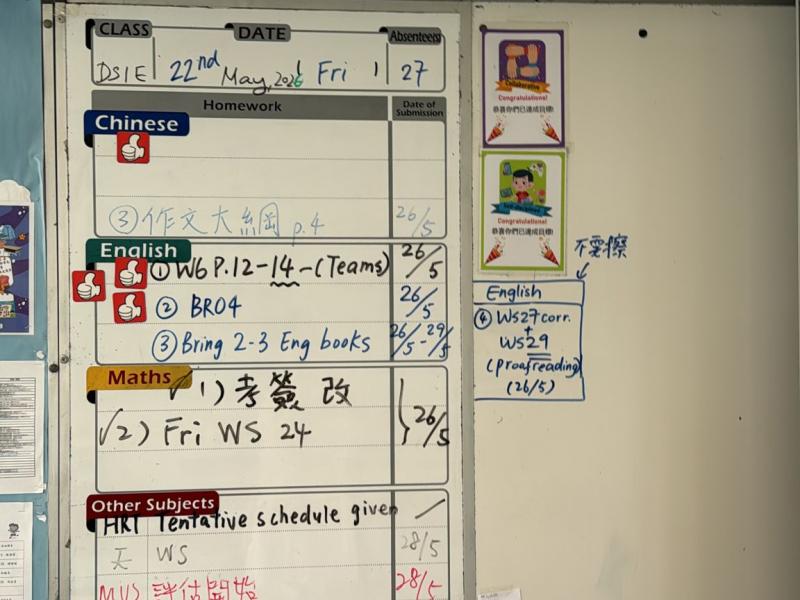 CLASS DATE Absentees
DS1E 22nd May, 2026 Fri 27
Homework Date of Submission
Chinese
③ 作文大綱 p.4 26/5
English
① W6 P.12-14-(Teams) 26/5
② BR04 26/5
③ Bring 2-3 Eng books 26/5-29/5
Maths
√1) 考簽改
√2) Fri WS 24 26/5
Other Subjects
HRT Tentative schedule given
WS 28/5
評估開始 28/5
Collaborative
Congratulations!
恭喜你們已達成目標!
Congratulations!
恭喜你們已達成目標!
不要擦
English
④ WS27 corr.
+
WS29
(proofreading)
(26/5)